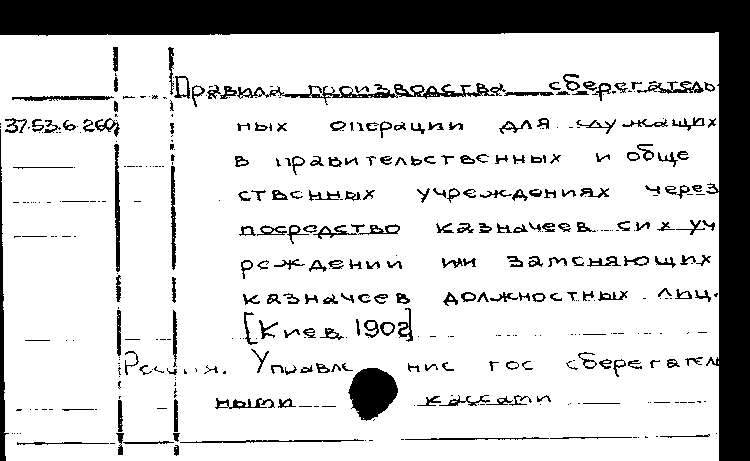 Правила производства сберегатель
37.53.6.260 ных операции для служащих
в правительственных и обще
ственных учреждениях через
посредство казначеев сих уч
реждении или заменяющих
казначеев должностных лиц.
[Киев 1902]
Россия. Управление гос сберегатель
ными кассами